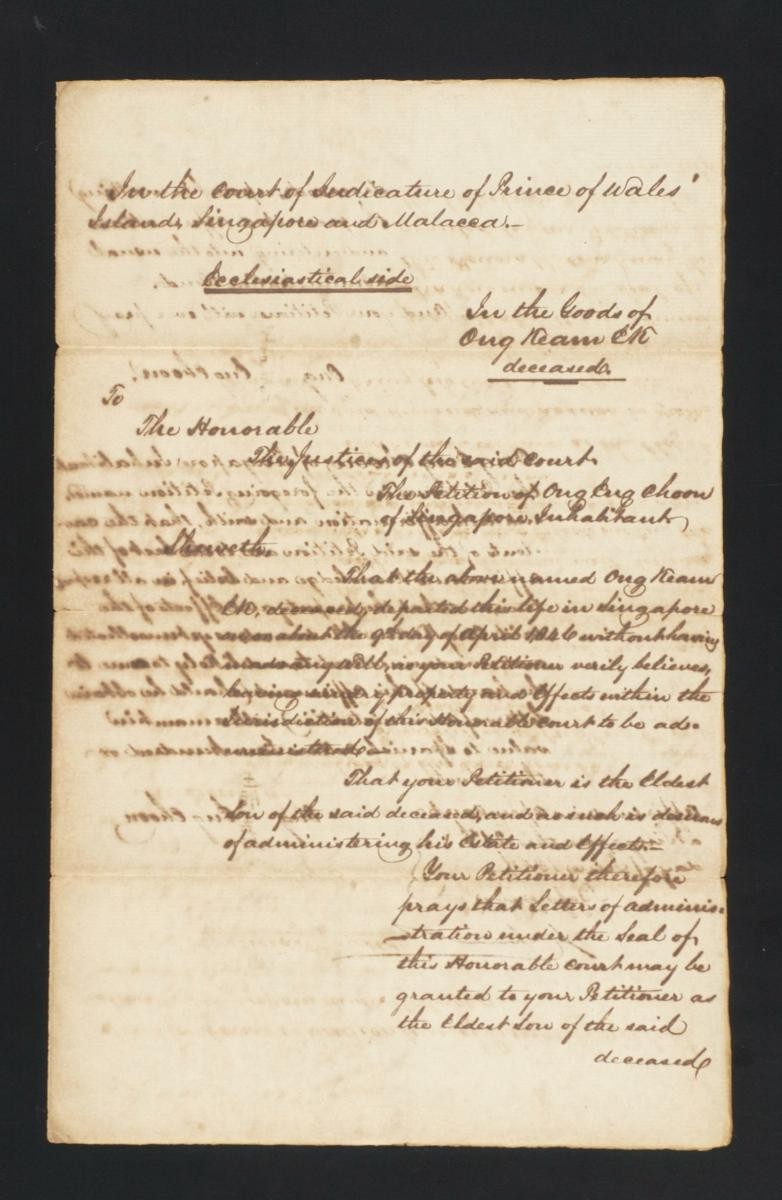 In the Court of Judicature of Prince of Wales'
Island, Singapore and Malacca.—
Ecclesiastical side
In the Goods of
Ong Keam Ek
deceased.
To
The Honorable
The Justices of the said Court
The Petition of Ong Eng Choon
of Singapore, Inhabitant,
Sheweth,
That the above named Ong Keam
Ek, deceased, departed this life in Singapore
on or about the 9th day of April 1846 without having
made any will, as your Petitioner verily believes,
leaving property and Effects within the
Jurisdiction of this Honorable Court to be ad-
ministered.
That your Petitioner is the Eldest
Son of the said deceased, and as such is desirous
of administering his Estate and Effects.—
Your Petitioner therefore
prays that Letters of Adminis-
tration under the Seal of
this Honorable Court may be
granted to your Petitioner as
the Eldest Son of the said
deceased